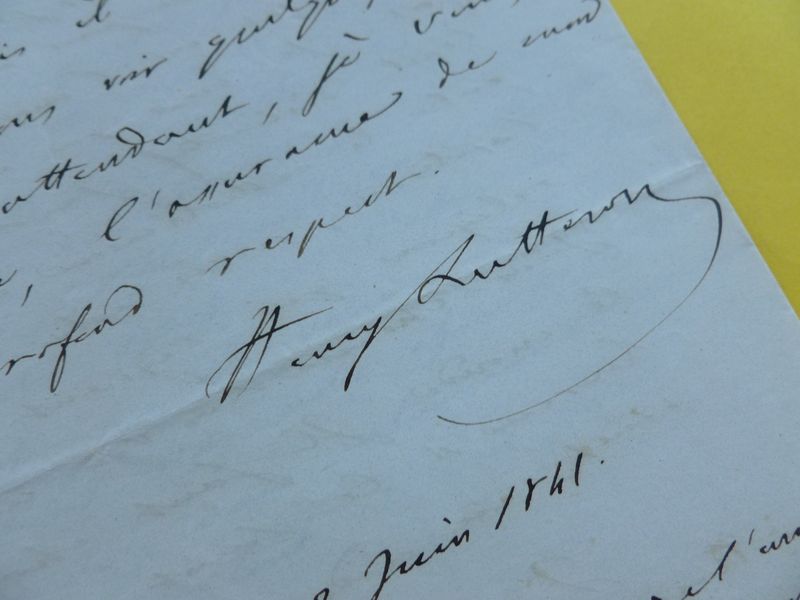 il
voir quelqu
attendant, je vous
l'assurance de mon
profond respect.
Henry Lutteron
Juin 1841.
de l'am